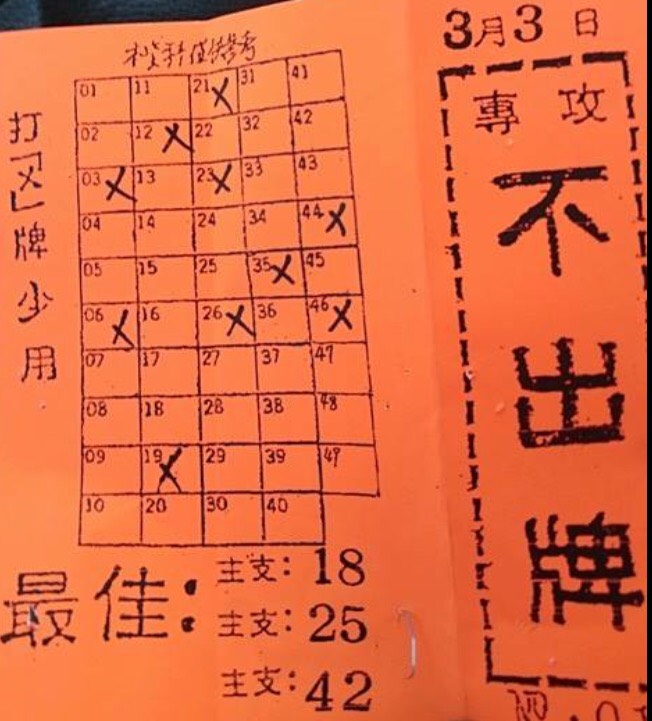 3月3日
專攻
不出牌
打「X」牌少用
01 11 21X 31 41
02 12X 22 32 42
03X 13 23X 33 43
04 14 24 34 44X
05 15 25 35X 45
06X 16 26X 36 46X
07 17 27 37 47
08 18 28 38 48
09 19X 29 39 49
10 20 30 40
最佳:
主支:18
主支:25
主支:42